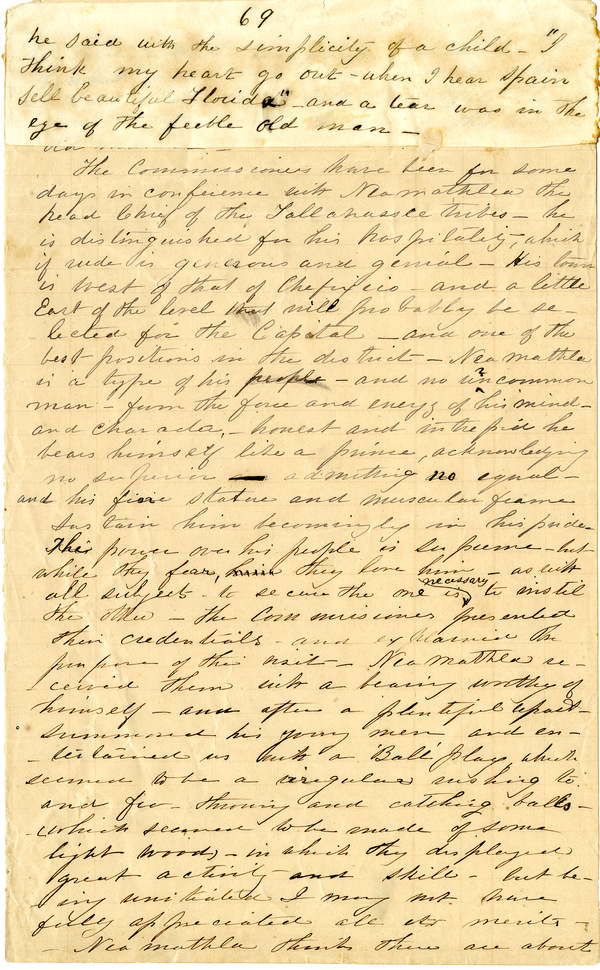 69
he said with the simplicity of a child - "I
think my heart go out - when I hear Spain
sell beautiful Florida" - and a tear was in the
eye of the feeble old man -
The Commissioners have been for some
days in conference with Neamathlea the
head Chief of the Tallahassee tribes - he
is distinguished for his hospitality, which
if rude is generous and genial - His town
is West of that of Chefixico - and a little
East of the level that will probably be se-
lected for the Capital - and one of the
best positions in the district - Neamathla
is a type of his people - and no uncommon
man - from the force and energy of his mind -
and character, - honest and intrepid he
bears himself like a prince, acknowledging
no superior admitting no equal -
and his fine stature and muscular frame
sustain him becomingly in his pride -
His power over his people is supreme - but
while they fear, him they love him - as with
all subjects - to secure the one is necessary to instil
the other - The Commissioners presented
their credentials - and explained the
purpose of their visit - Neamathla re-
ceived them with a bearing worthy of
himself - and after a plentiful repast -
summoned his young men and en-
tertained us with a "Ball play, which
seemed to be a irregular rushing to
and fro - throwing and catching balls -
which seemed to be made of some
light wood - in which they displayed
great activity and skill - but be-
ing unitiated I may not have
fully appreciated all its merits -
- Neamathla thinks there are about